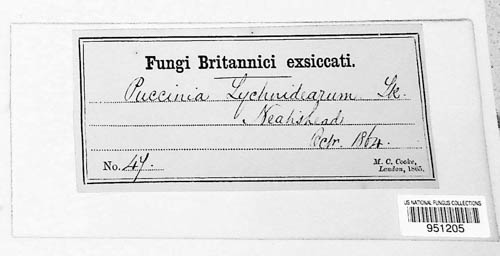 Fungi Britannici exsiccati.
Puccinia Lychnidearum Lk.
Neatishead
Octr. 1864.
No. 47.
M. C. Cooke,
London, 1865.
US NATIONAL FUNGUS COLLECTIONS
951205